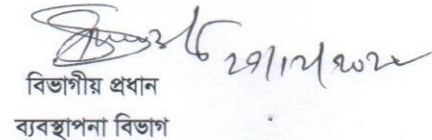 ২৭/১২/২০২০
বিভাগীয় প্রধান
ব্যবস্থাপনা বিভাগ